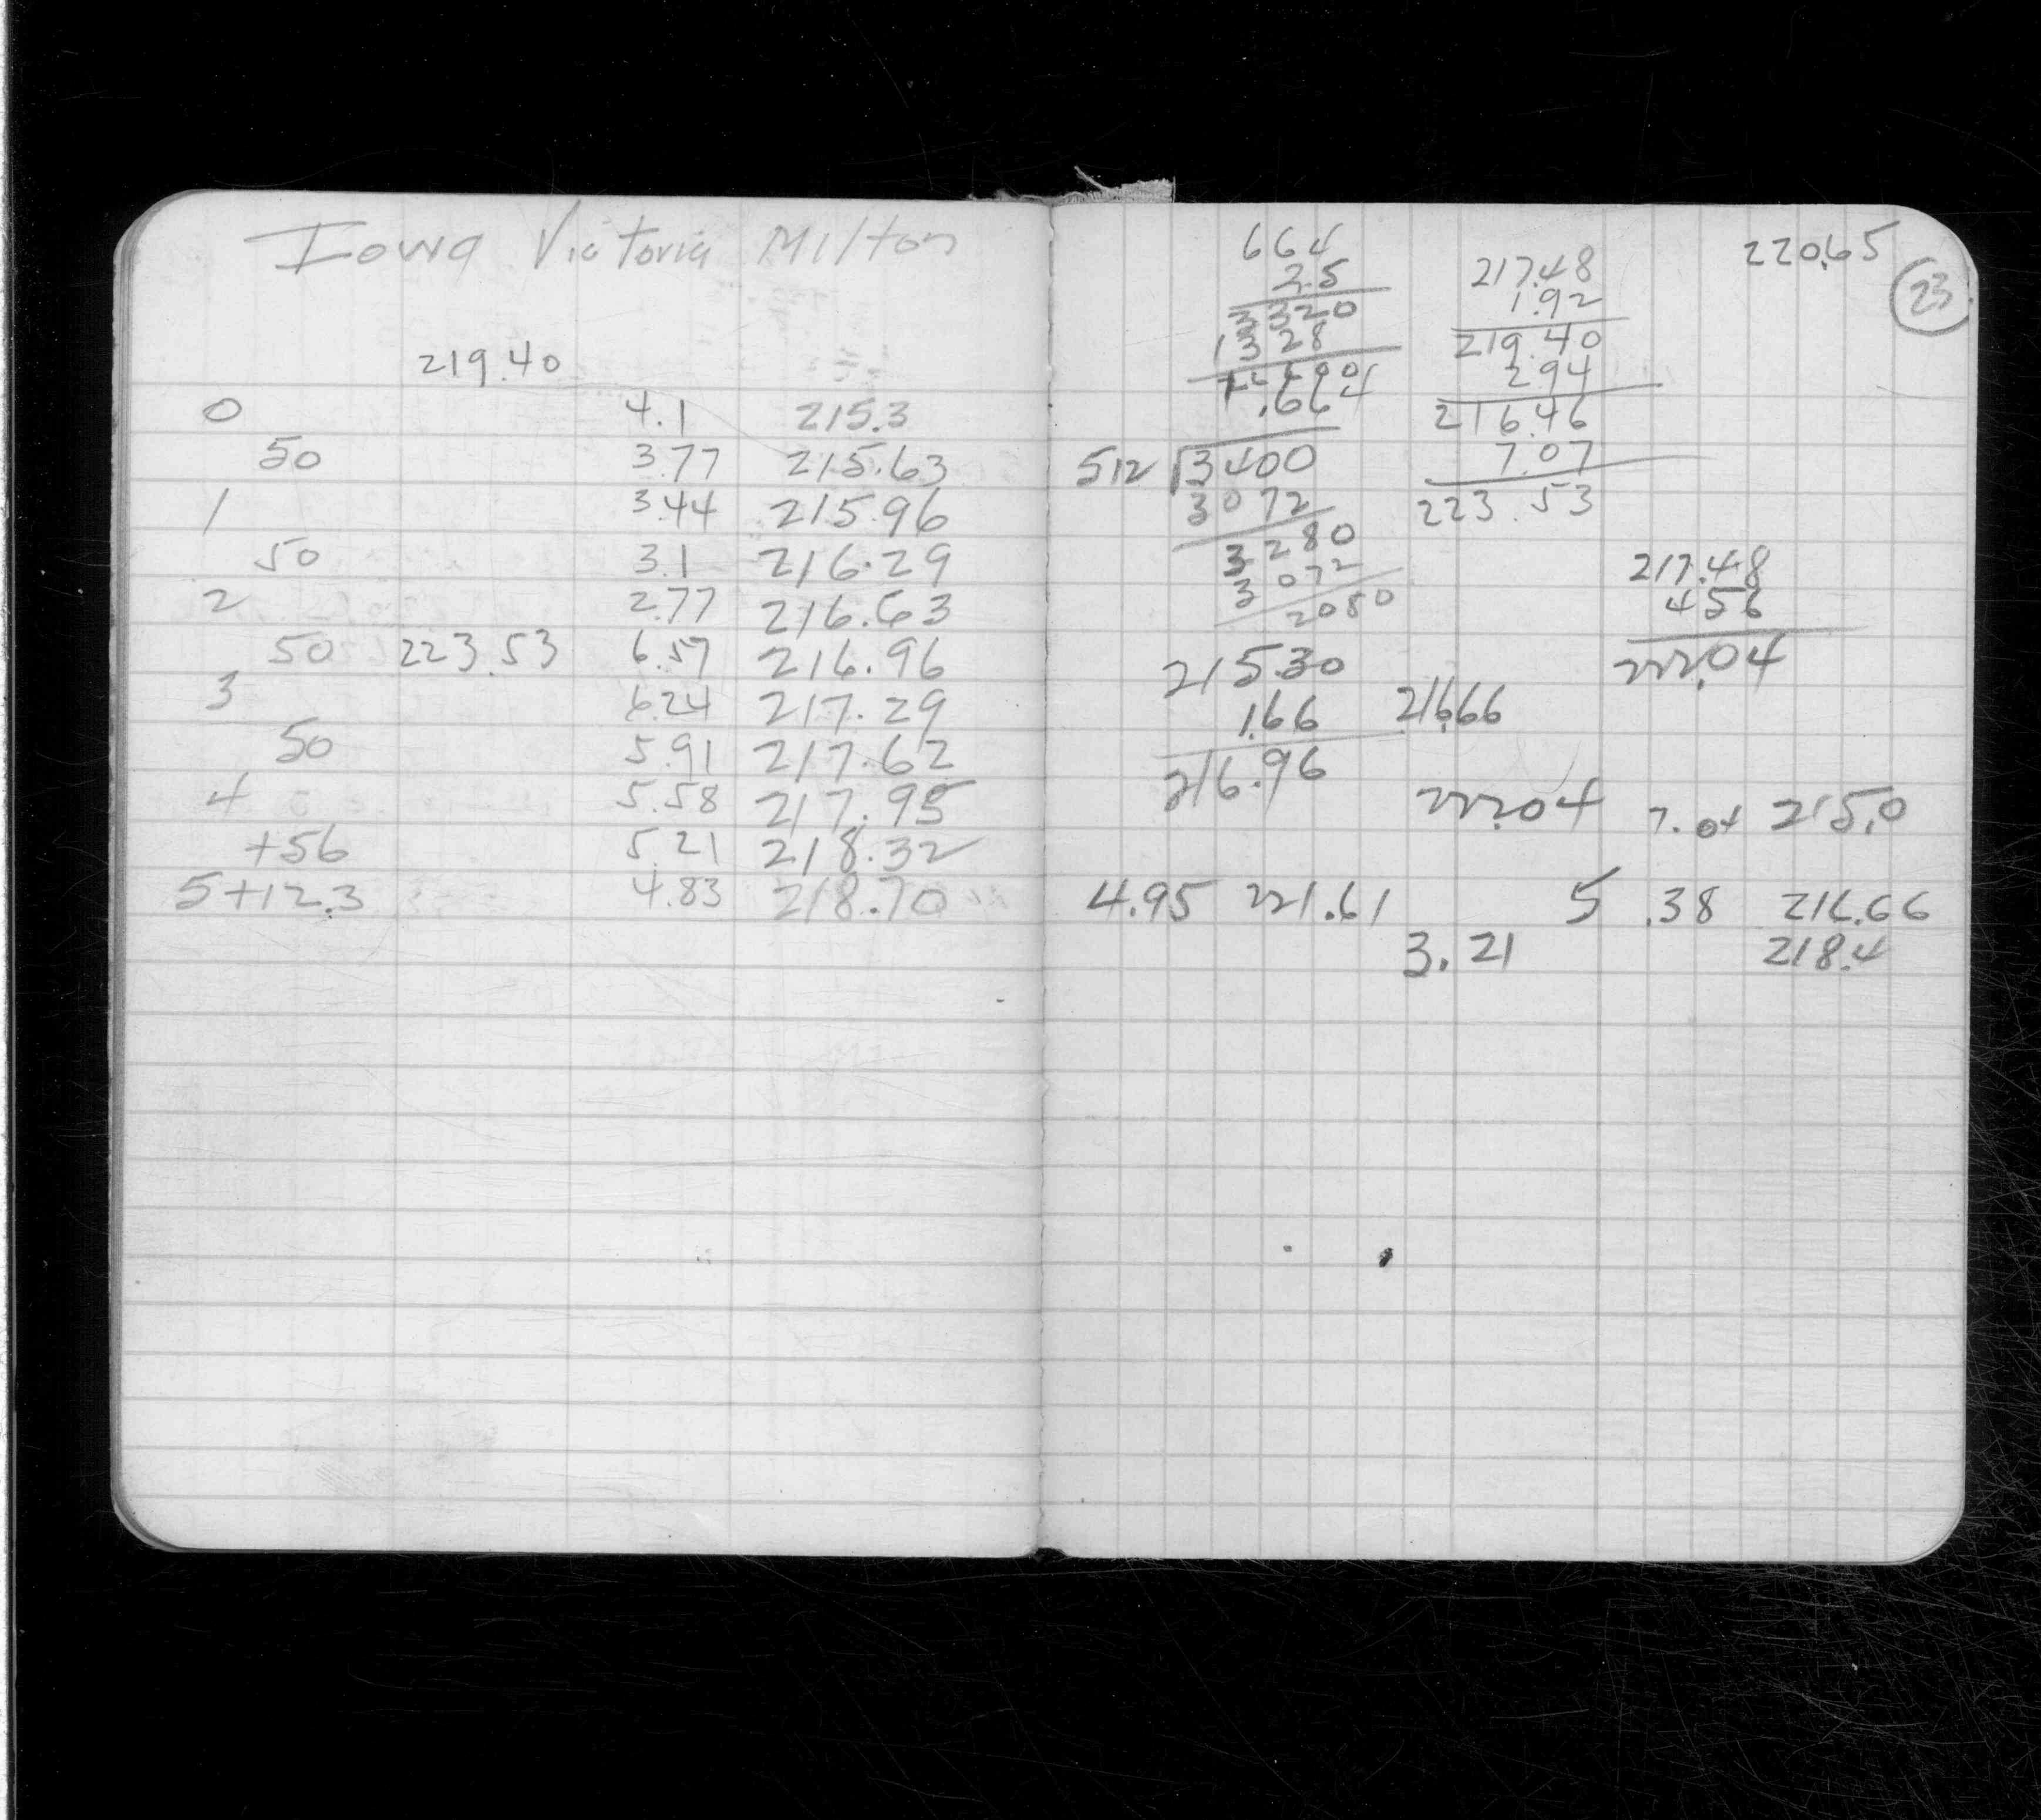 Iowa Victoria Milton
219.40
0 4.1 215.3
50 3.77 215.63
1 3.44 215.96
50 3.1 216.29
2 2.77 216.63
50 223.53 6.57 216.96
3 6.24 217.29
50 5.91 217.62
4 5.58 217.95
+56 5.21 218.32
5+12.3 4.83 218.70
220.65
23
664
2.5
3320
1328
.664
512 3400
3072
3280
3072
2080
215.30
1.66
216.96
217.48
1.92
219.40
2.94
216.46
7.07
223.53
216.66
217.48
4.56
222.04
222.04 7.04 215.0
4.95 221.61 5 .38 216.66
3.21 218.4